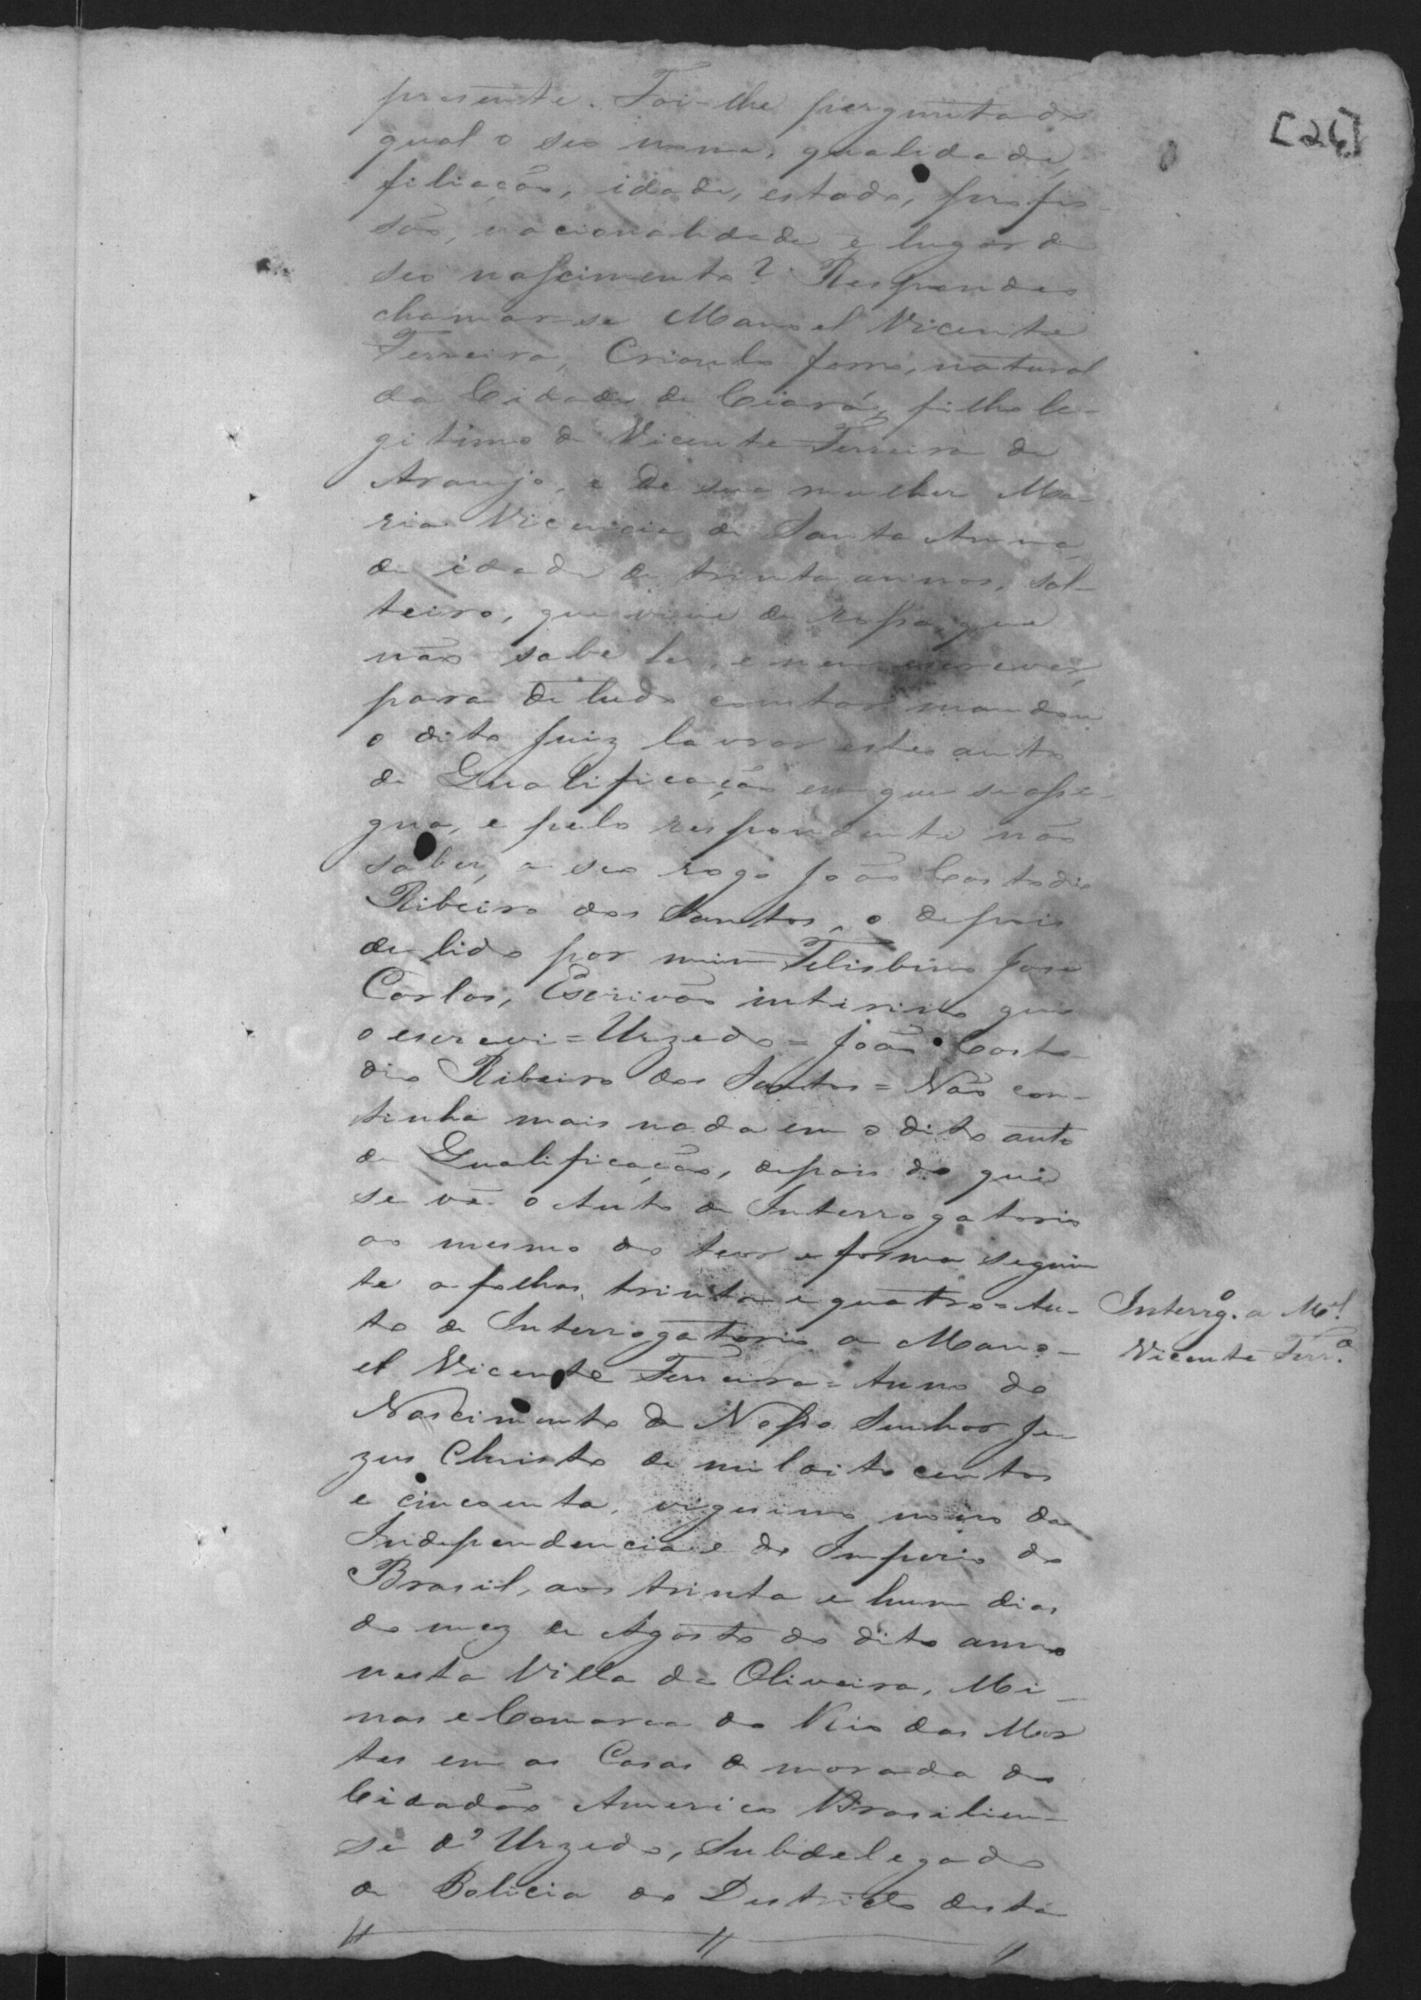 [26]
presente. Foi-lhe perguntado
qual o seo nome, qualidade,
filiação, idade, estado, profis-
são, nacionalidade e lugar de
seo nascimento? Respondeo
chamar-se Manoel Vicente
Ferreira, Crioulo forro, natural
da Cidade de Ceará, filho le-
gitimo de Vicente Ferreira de
Araujo, e de sua mulher Ma-
ria Vicencia de Santa Anna,
de idade de trinta annos, sol-
teiro, que vive de rossa, que
não sabe ler, e nem escrever,
para de tudo constar mandou
o dito Juiz lavrar este auto
de Qualificação em que se assi-
gna, e pelo respondente não
saber, a seo rogo João Custodio
Ribeiro dos Santos, e depois
de lido por mim Felisbino José
Carlos, Escrivão interino que
o escrevi = Urzedo = João Custo-
dio Ribeiro dos Santos = Não con-
tinha mais nada em o dito auto
de Qualificação, depois do que
se vê o Auto de Interrogatorio
ao mesmo do teor e forma seguin
te a folhas trinta e quatro = Au-
to de Interrogatorio a Mano-
el Vicente Ferreira = Anno do
Nascimento de Nosso Senhor Je
zus Christo de mil oito centos
e cincoenta, vigesimo nono da
Independencia e do Imperio do
Brasil, aos trinta e hum dias
do mez de Agosto do dito anno
nesta Villa da Oliveira, Mi-
nas e Comarca do Rio das Mor
tes em as Casas de morada do
Cidadão Americo Brasilien-
se d'Urzedo, Subdelegado
de Policia do Districto desta
Interrg.º a M.el
Vicente Ferr.ª